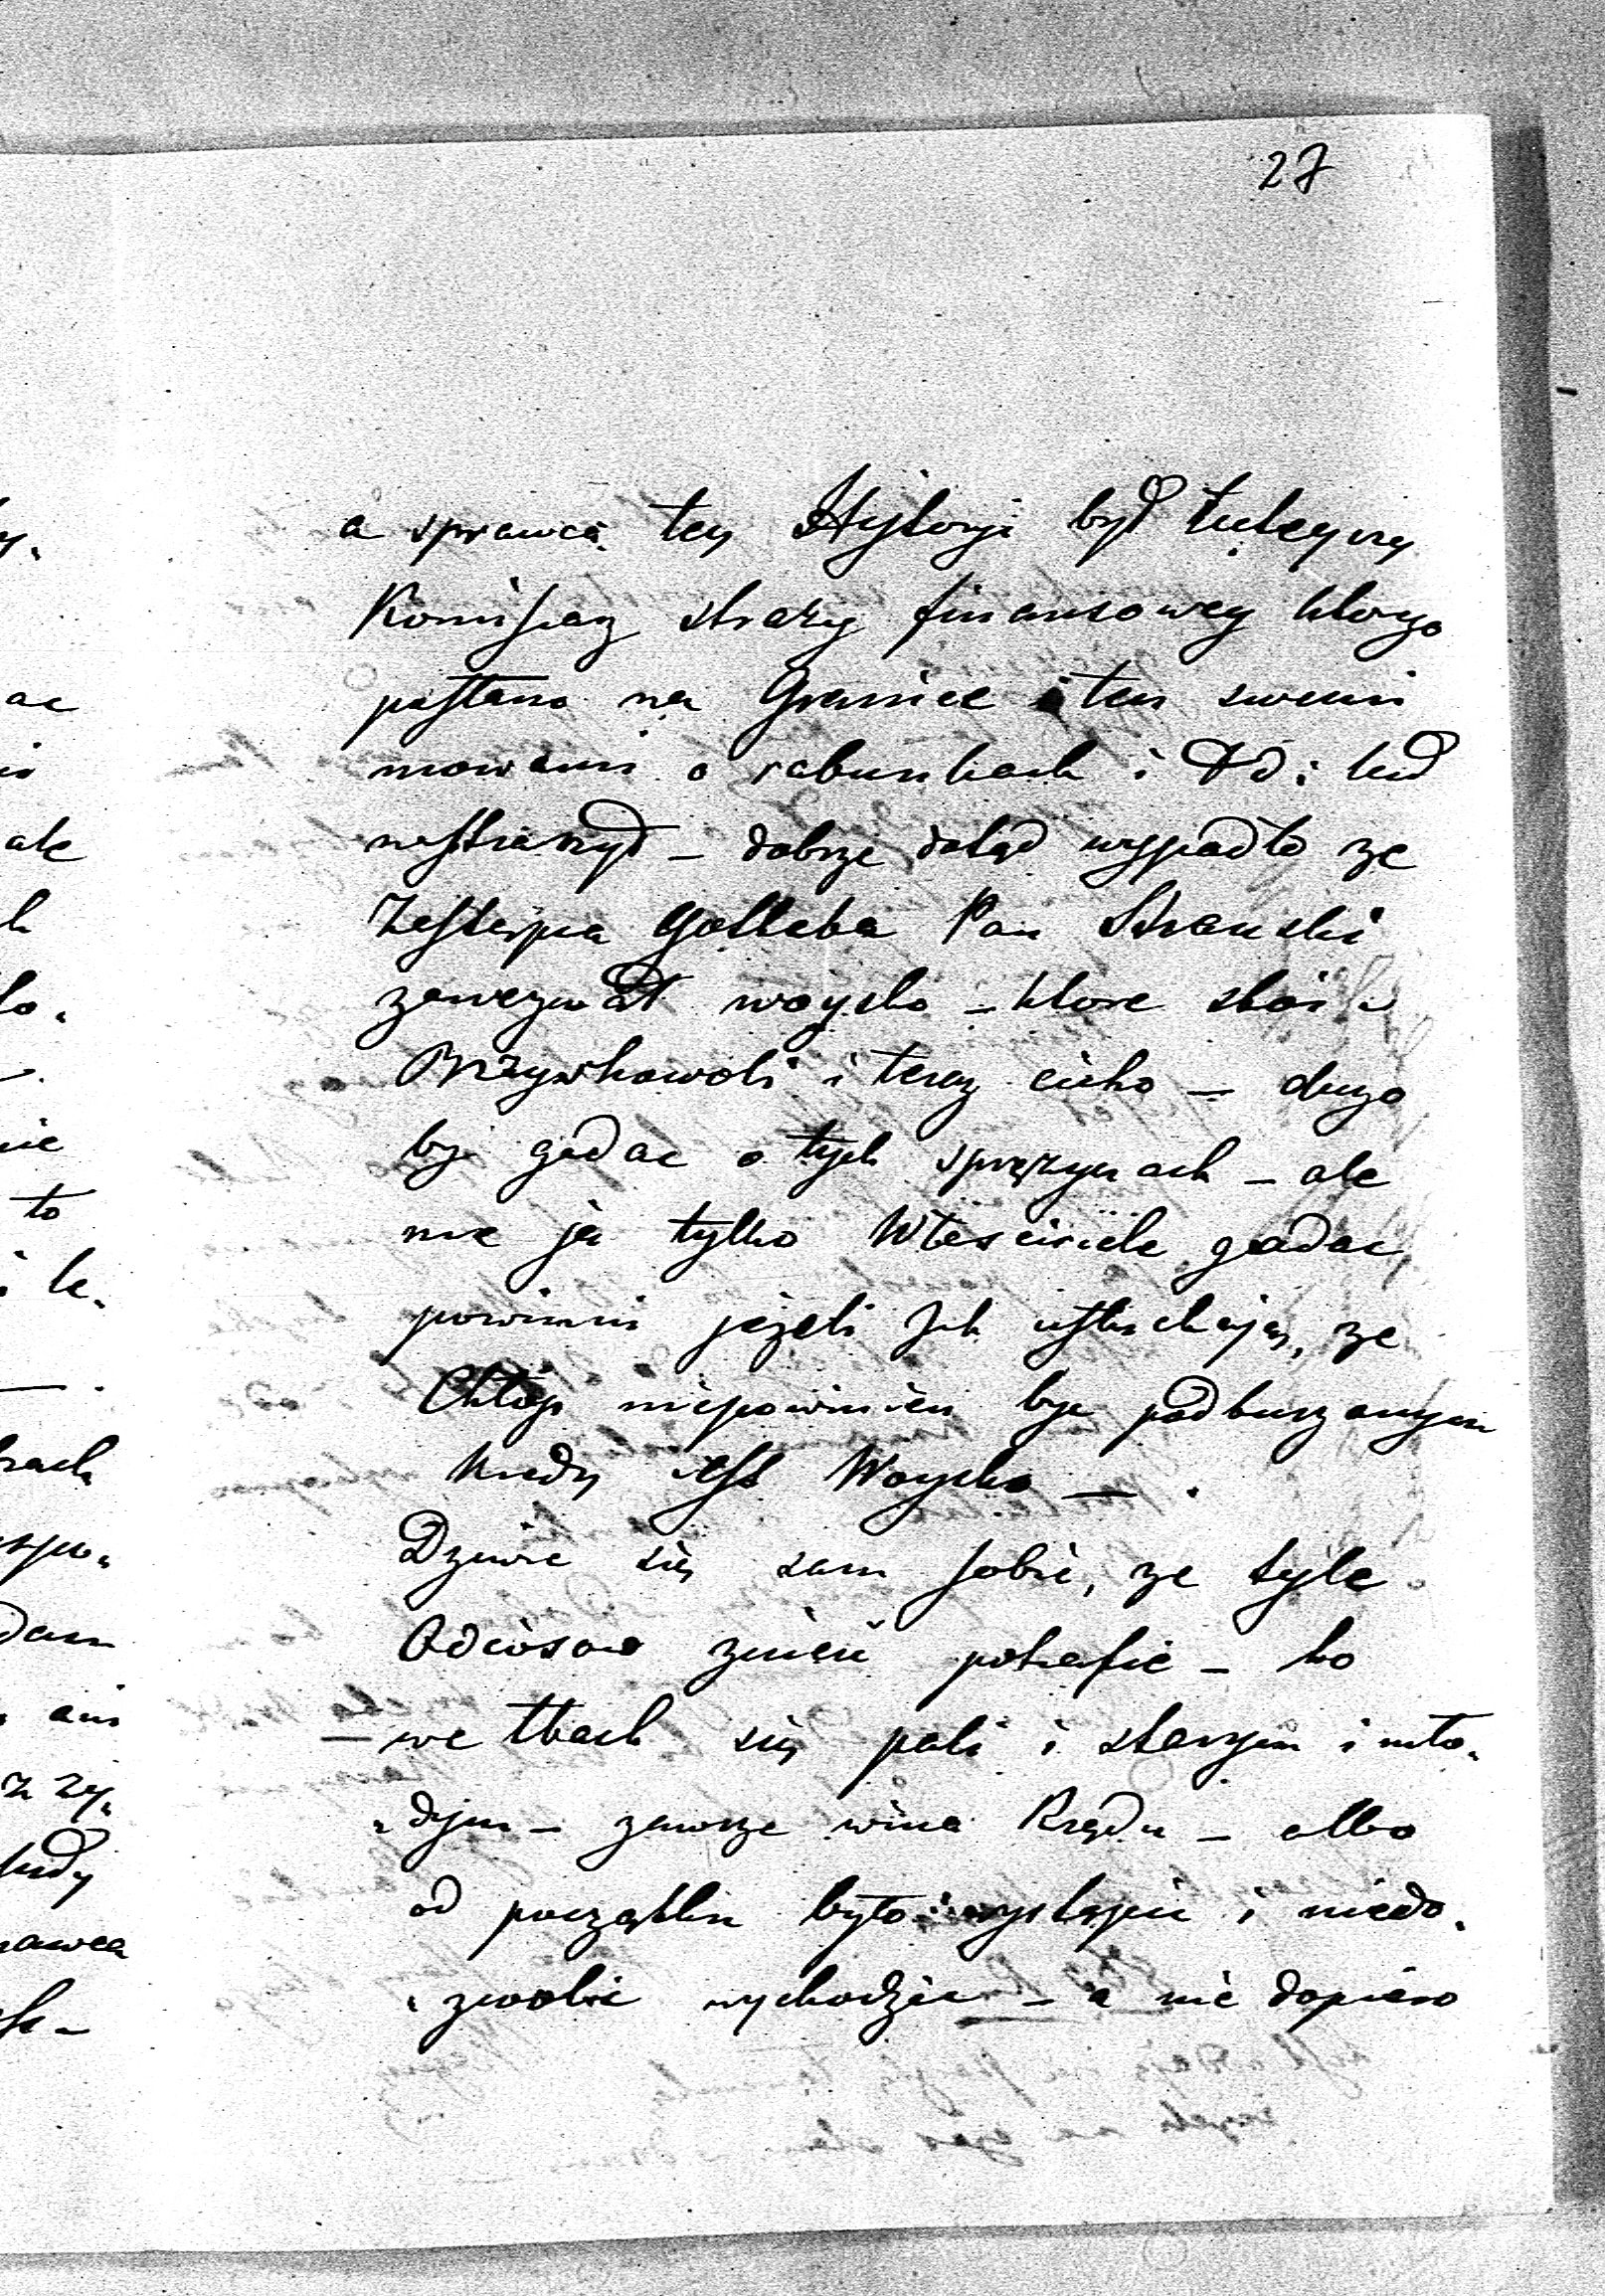 27
a sprawcą tey Hystoryi był tuteyszy
Komissarz strazy finansowey ktorego
posłano na Granice i ten swemi
mowami o rabunkach i td: lud
nastraszył – dobrze dotąd wypadło ze
Zastępca Gottleba Pan Stranski
zawezwał woysko – ktore stoi w
i teraz cicho – dugo
by gadac o tych spręzynach – ale
nie ja tylko Własciciele gadac
powinni jezeli Jch usłuchają, ze
Chłop niepowinien byc podburzanym
kiedy iest Woysko — .
Dziwie się sam sobie, ze tyle
Odciosow zniesć potrafie – bo
– we łbach się pali i starym i mło„
„dym – zawsze wina Rządu – albo
od początku było wystąpic i niedo„
„zwolic wychodzic – a nie dopiero
ac
ale
nie
to
dam
ani